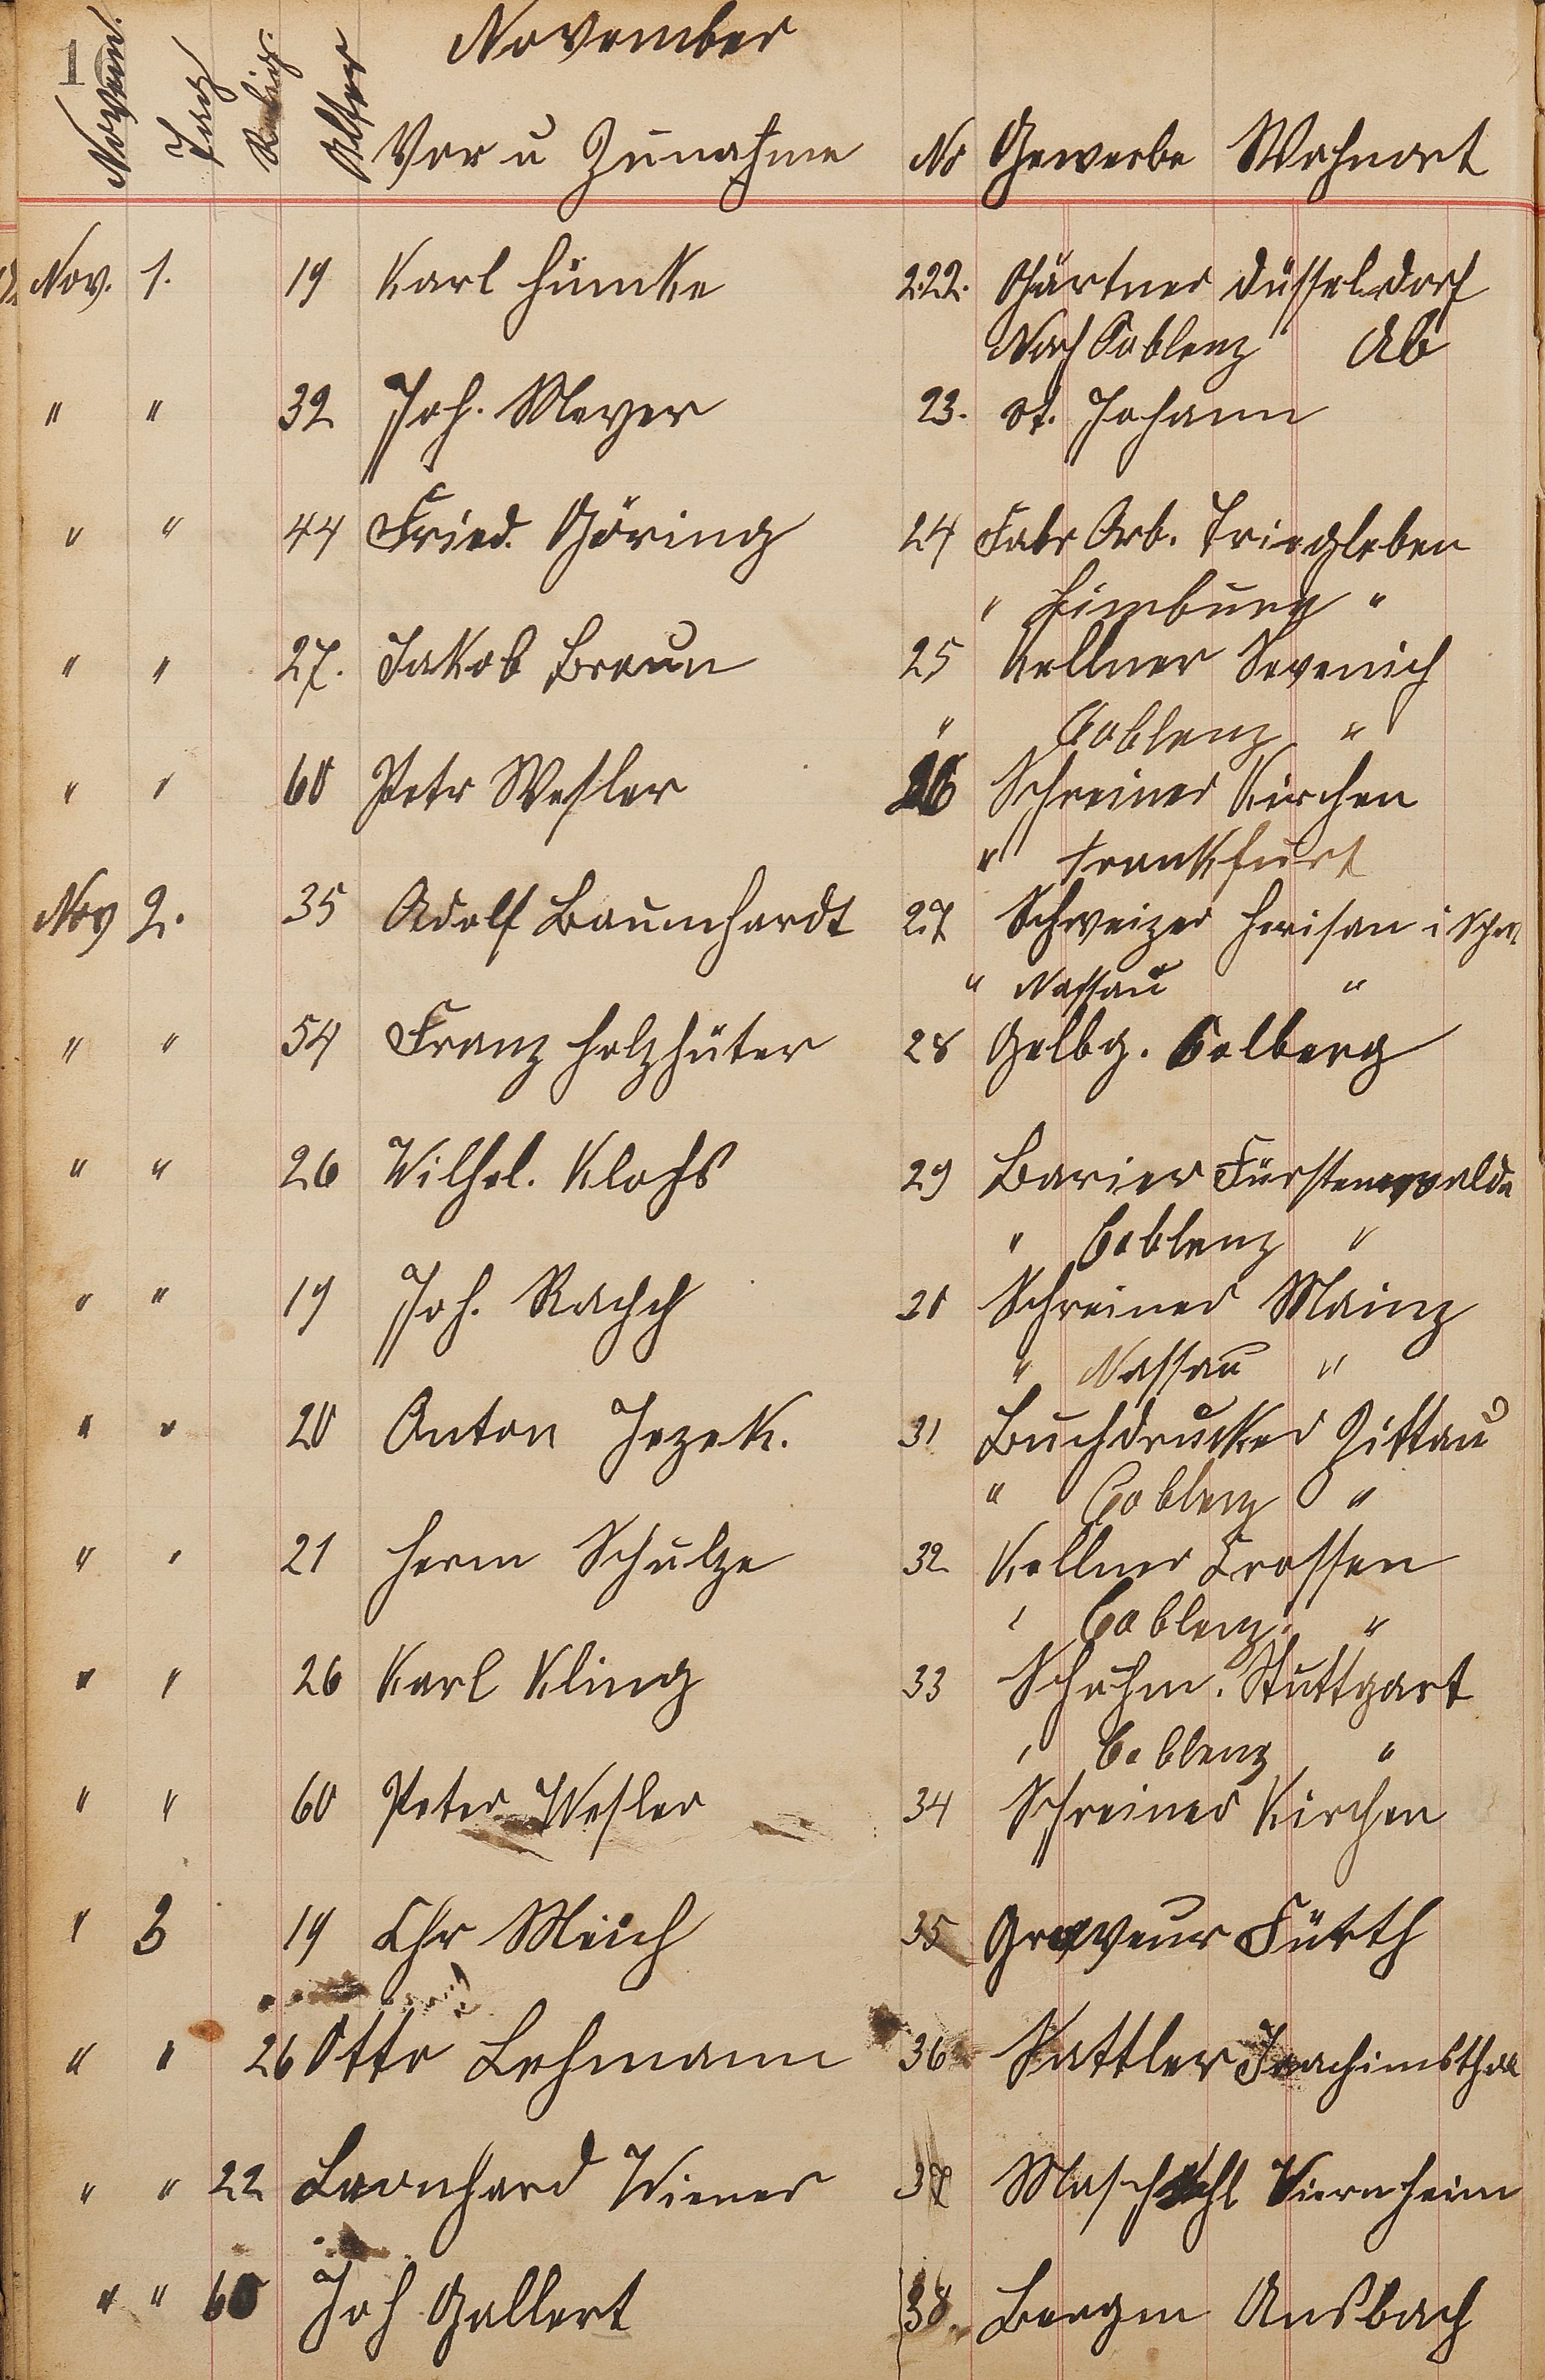 1
November
Novem. Tag Relig. Alter Vor u Zunahme No Gewerbe Wohnort
Nov. 1. 19 Karl Humke 222. Gärtner Düsseldorf
Nach Coblenz Ab
" " 32 Joh. Meyer 23. St. Johann
" " 44 Fried. Göring 24 Fabr Arb. Triegleben
" Limburg "
" " 27. Jakob Braun 25 Kellner Sevenich
" Coblenz "
" " 60 Petr Wesler 26 Schreiner Kirchen
" Frankfurt
Nov 2. 35 Adolf Baumhardt 27 Schweizer Herisau i Schw
" Nassau "
" " 54 Franz Holzhüter 28 Gelbg. Colberg
" " 26 Wilhel. Klohs 29 Barier Fürstenwalde
" Coblenz "
" " 19 Joh. Rachh 20 Schreiner Mainz
" Nassau "
" " 20 Anton Jezek. 31 Buchdrucker Zittau
" Coblenz "
" " 21 Herm Schulze 32 Kellner Crossen
" Coblenz "
" " 26 Karl Kling 33 Schuhm. Stuttgart
" Coblenz "
" " 60 Peter Wesler 34 Schreiner Kirchen
" 3 19 Chr Meich 35 Graveur Fürth
" " 26 Otto Lehmann 36 Sattler Joachimsthal
" " 22 Leonhard Wiener 37 Masch Viernheim
" " 60 Joh Gallert 38. Bergm Ansbach